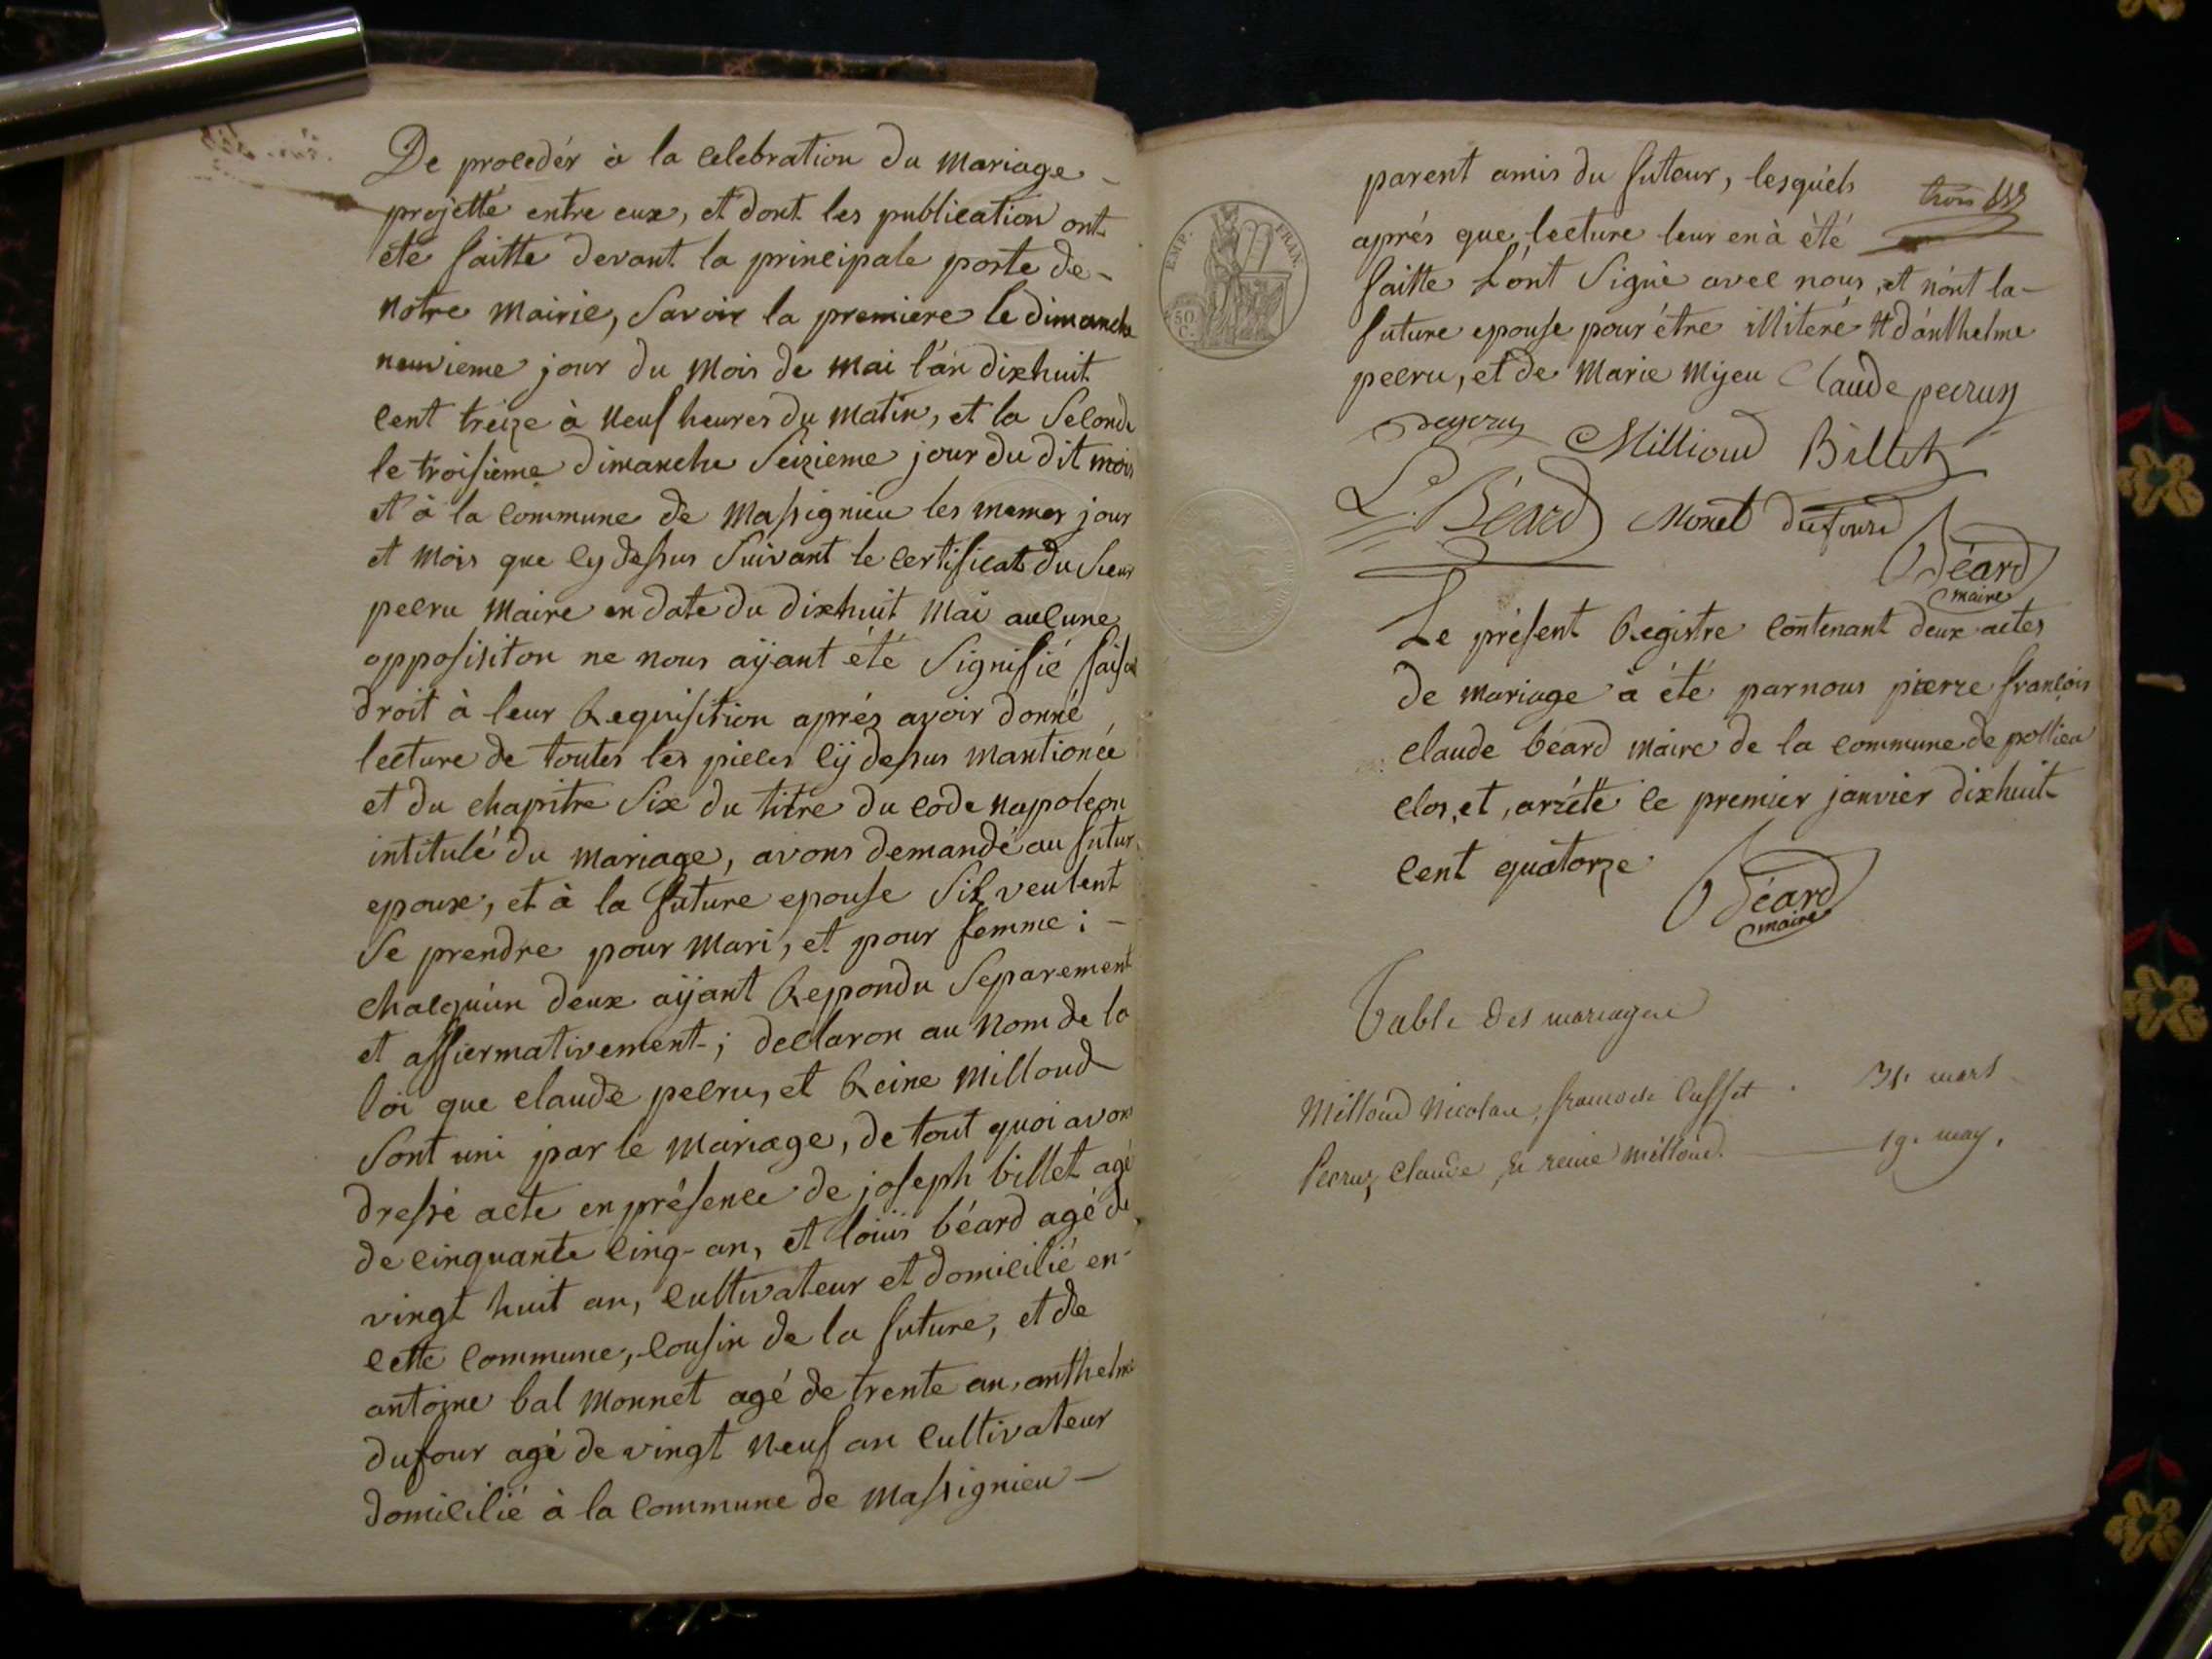 De procedér à la celebration du mariage -
projetté entre eux, et dont les publication ont
été faitte devant la principale porte de -
notre mairie, savoir la premiere le dimanche
neuvieme jour du mois de mai l'an dixhuit
cent treize à neuf heures du matin, et la seconde
le troisieme dimanche seizieme jour du dit mois
et à la commune de massignieu les memes jour
et mois que cy dessus suivant le certificat du sieur
pecru maire en date du dixhuit mai aucune
opposisiton ne nous aÿant été signifié faisant
droit à leur Requisition aprés avoir donné
lecture de toutes les pieces cÿ dessus mantionée
et du chapitre six du titre du code napoleon
intitulé du mariage, avons demandé au futur
epoux, et à la future epouse sil veulent
se prendre pour mari, et pour femme ; -
chacquún deux aÿant Repondu separement
et affiermativement ; declaron au nom de la
loi que claude pecru, et Reine milloud
sont uni par le mariage, de tout quoi avons
dressé acte en présence de joseph billet agé
de cinquante cinq an, et loüis béard agé de
vingt huit an, cultivateur et domicilié en
cette commune, cousin de la future, et de
antoine bal monnet agé de trente an, anthelme
dufour agé de vingt neuf an cultivateur
domicilié à la commune de massignieu -
EMP. FRAN.
50 C.
trois
parent amis du futeur, lesquéls
aprés que lecture leur en à été
faitte l'ont signé avec nous, et nónt la -
future epouse pour étre illiteré # dánthelme
pecru, et de marie mijeu Claude pecruy
Millioud Billet
Ls. Béard Monet dufour
Béard
maire
Le présent Registre contenant deux actes
de mariage à été par nous pierre françois
claude béard maire de la commune de pollieu
clos, et, arrété le premier janvier dixhuit
cent quatorze
Béard
maire
Table des mariages
Milloud Nicolas, francoise Cusset . 31. mars
Pecruy Claude, & reine milloud. 19. may.